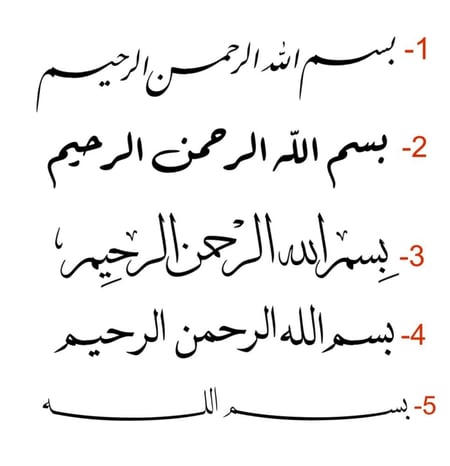 1- بسم الله الرحمن الرحيم
2- بسم اللّه الرحمن الرحيم
3- بِسمِ الله الرَّحمن الرحِيمِ
4- بسم الله الرحمن الرحيم
5- بســـم اللـــــه